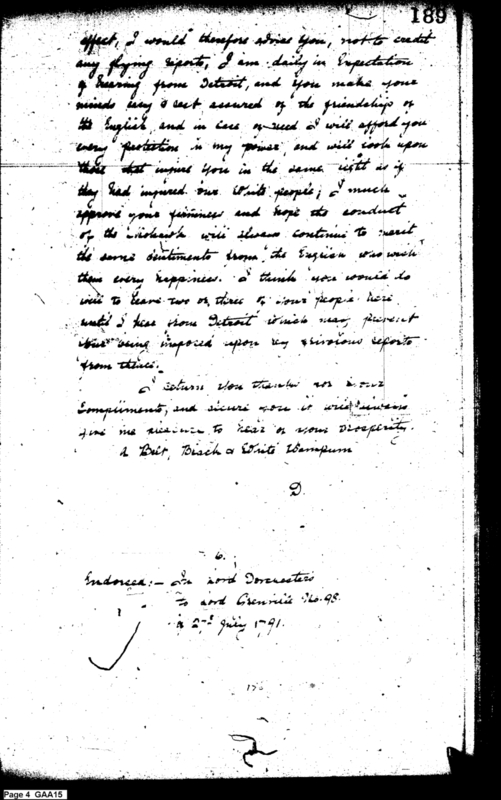 189
effect, I would therefore advise you, not to credit
any flying reports, I am daily in Expectation
of hearing from Detroit, and you make your
minds easy & rest assured of the friendship of
the English, and in case of need I will afford you
every protection in my power, and will look upon
those that injure you in the same light as if
they had injured our White people; I much
approve your firmness and hope the conduct
of the will always continue to merit
the same sentiments from the English who wish
them every happiness. I think you would do
well to leave two or three of your people here
until I hear from Detroit which may prevent
your being imposed upon by frivolous reports
from thence.
I return you thanks for your
Compliments, and assure you it will always
give me pleasure to hear of your prosperity.
A Belt, Black & White Wampum
D.
6.
Endorsed:— In Lord Dorchesters
to Lord Grenville No. 95.
2nd July 1791.
Page 4 GAA15